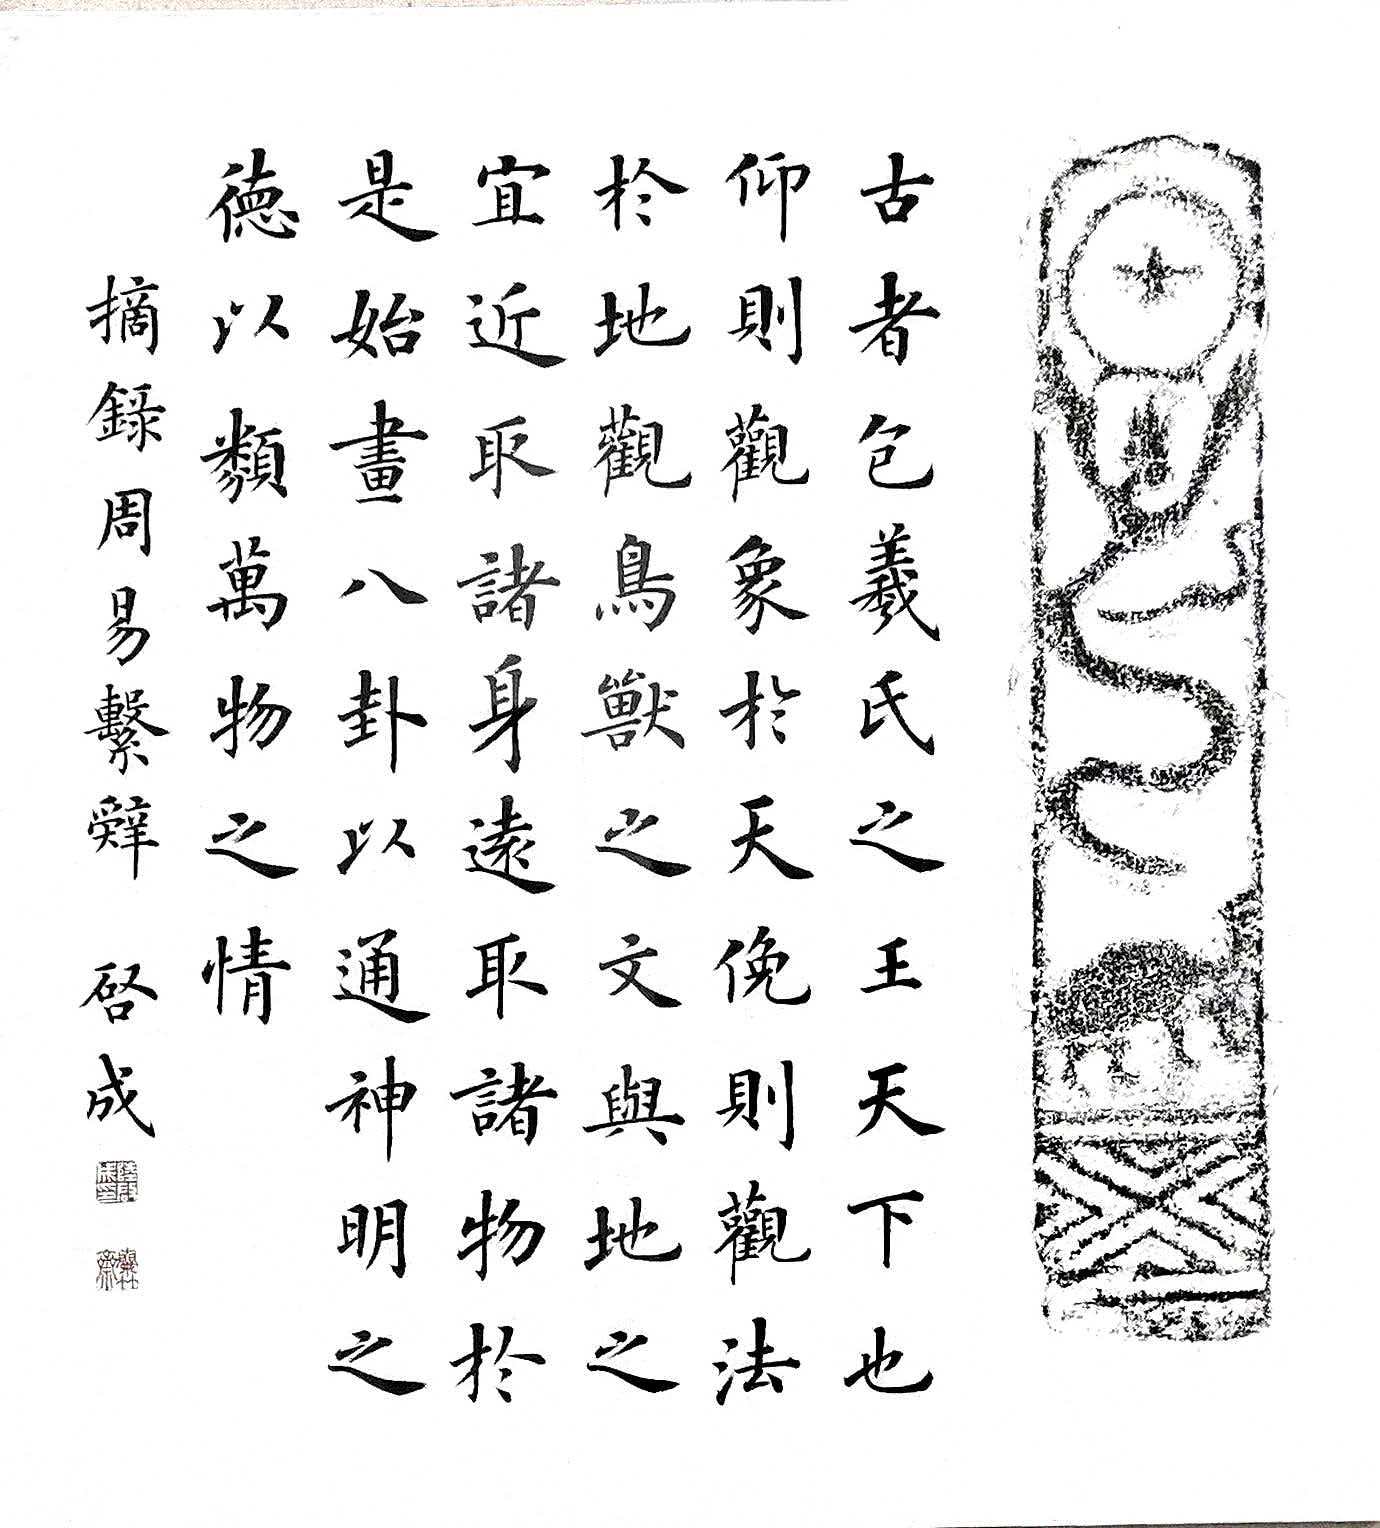 古者包羲氏之王天下也
仰則觀象於天俛則觀法
於地觀鳥獸之文與地之
宜近取諸身遠取諸物於
是始畫八卦以通神明之
德以類萬物之情
摘錄周易繫辭 啓成